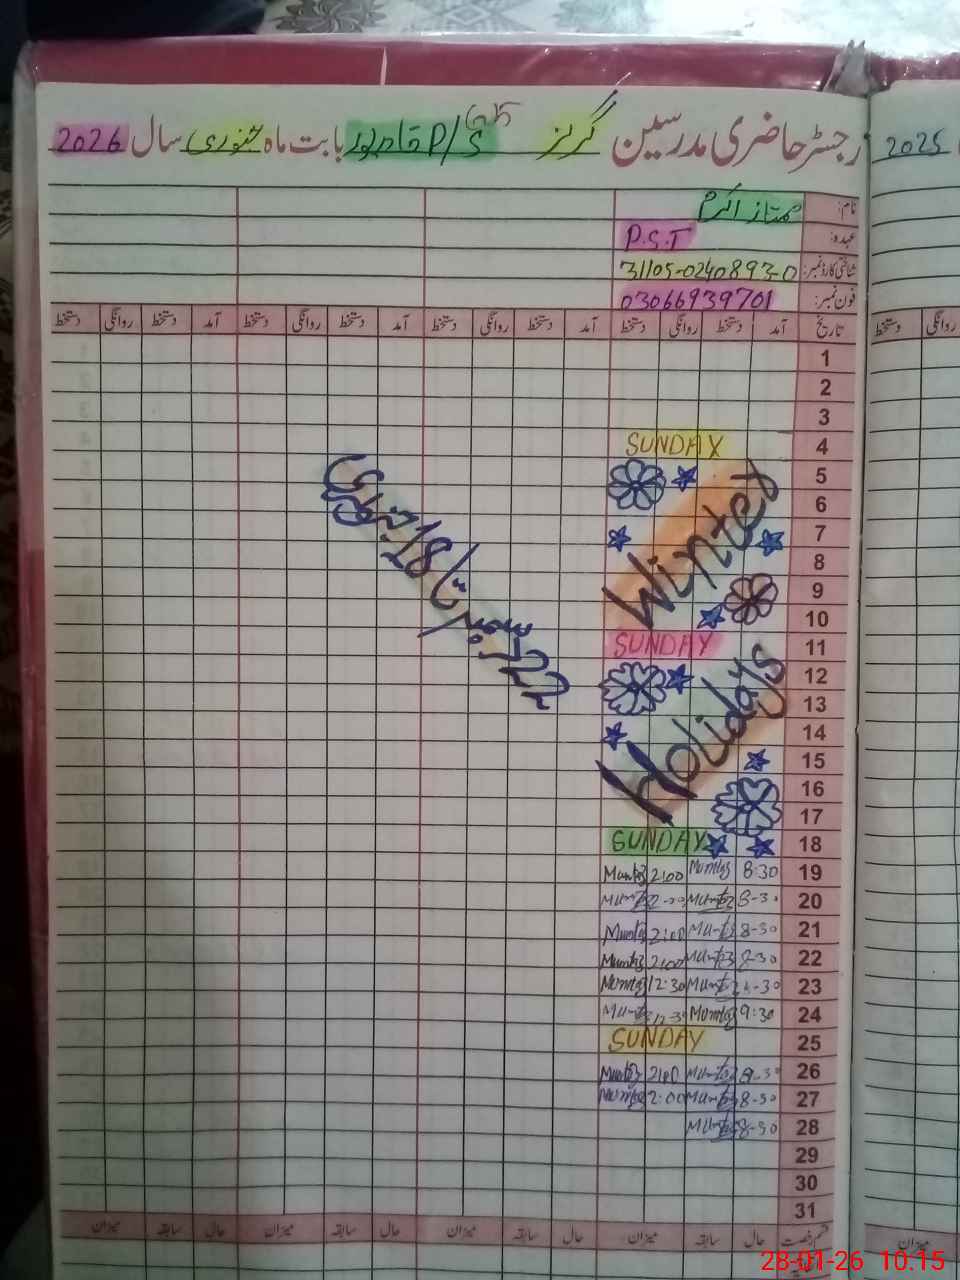 رجسٹر حاضری مدرسین گرلز P/S قادر پور بابت ماہ جنوری سال 2026
2025
نام: ممتاز اکرم
عہدہ: P.S.T
شناختی کارڈ نمبر: 31105-0240893-0
فون نمبر: 03066939701
تاریخ آمد دستخط روانگی دستخط آمد دستخط روانگی دستخط آمد دستخط روانگی دستخط آمد دستخط روانگی دستخط
روانگی دستخط
1
2
3
4 SUNDAY
5
6
7
8
9
10
Winter
11 SUNDAY
12
13
14
15
16
17
Holidays
22 دسمبر تا 18 جنوری
18 SUNDAY
19 8:30 Mumtaz 2:00 Mumtaz
20 8-30 Mumtaz 2:00 Mumtaz
21 8-30 Mumtaz 2:00 Mumtaz
22 8-30 Mumtaz 2:00 Mumtaz
23 Mumtaz 12:30 Mumtaz
24 9:30 Mumtaz Mumtaz
25 SUNDAY
26 Mumtaz 2:00 Mumtaz
27 8-30 Mumtaz 2:00 Mumtaz
28 8-30 Mumtaz
29
30
31
قسم رخصت حال سابقہ میزان حال سابقہ میزان حال سابقہ میزان حال سابقہ میزان
میزان
28-01-26 10.15